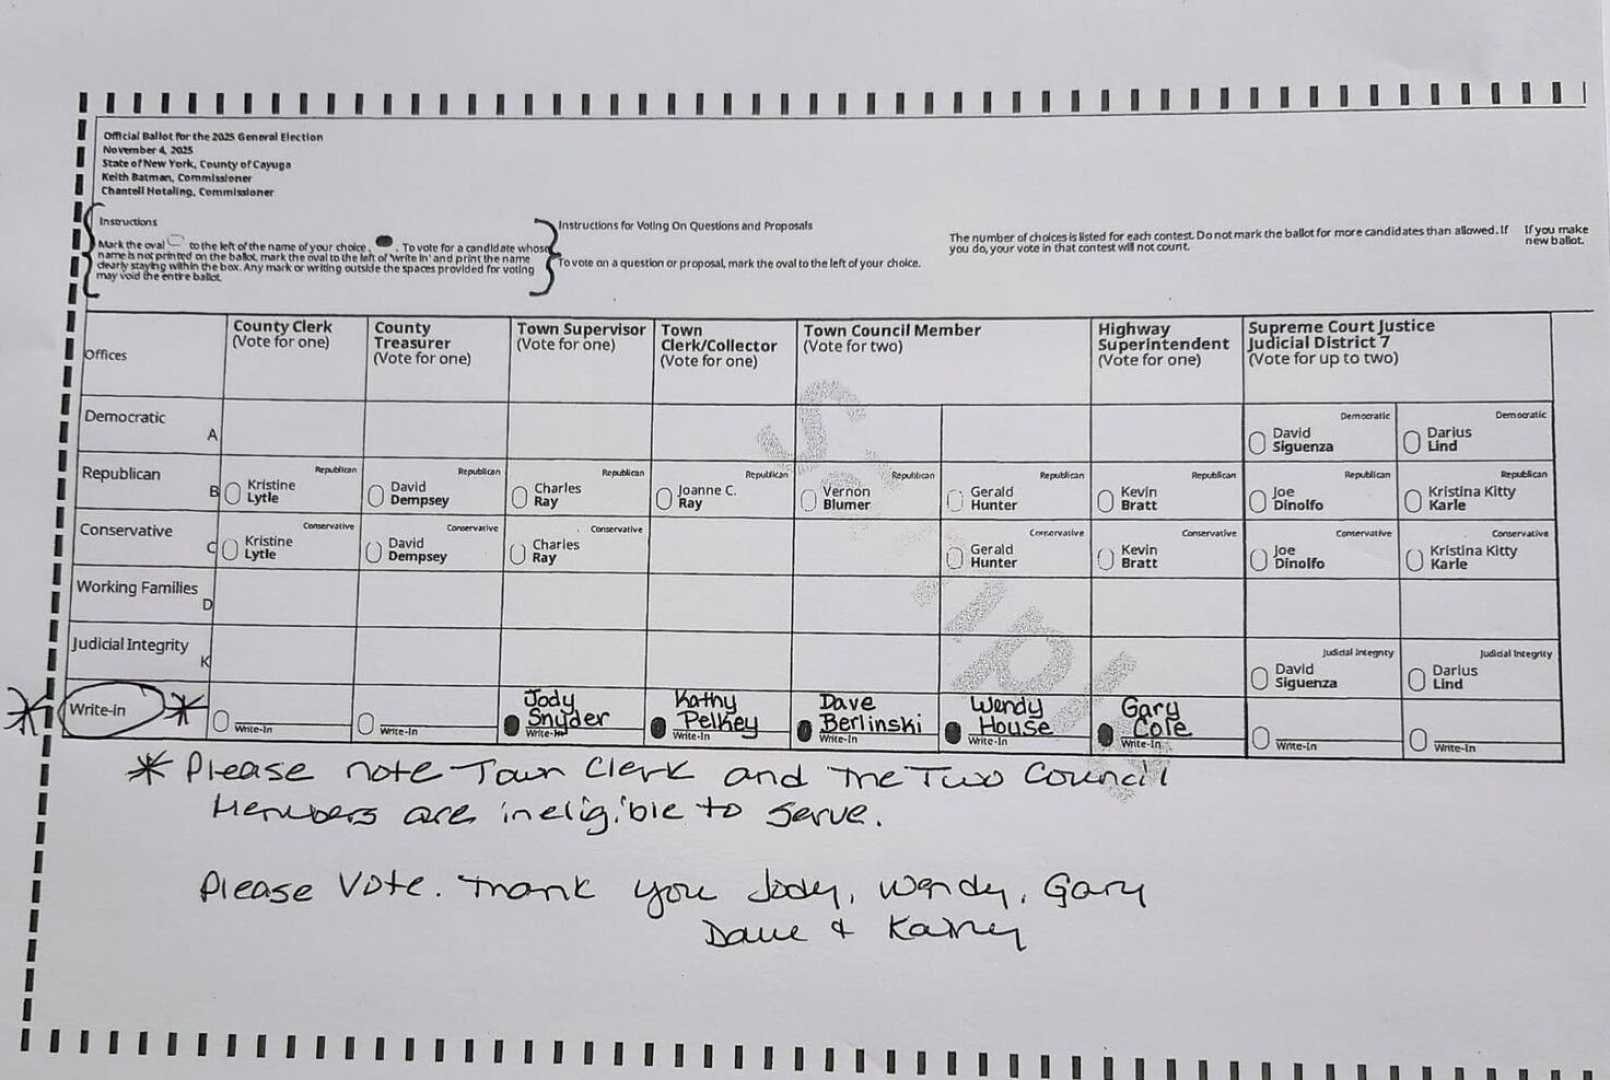 Official Ballot for the 2025 General Election
November 4, 2025
State of New York, County of Cayuga
Keith Batman, Commissioner
Chantell Hotaling, Commissioner
Instructions
Mark the oval to the left of the name of your choice. To vote for a candidate whose
name is not printed on the ballot, mark the oval to the left of 'Write In' and print the name
clearly staying within the box. Any mark or writing outside the spaces provided for voting
may void the entire ballot.
Instructions for Voting On Questions and Proposals
To vote on a question or proposal, mark the oval to the left of your choice.
The number of choices is listed for each contest. Do not mark the ballot for more candidates than allowed. If
you do, your vote in that contest will not count.
If you make
new ballot.
Offices
County Clerk
(Vote for one)
County
Treasurer
(Vote for one)
Town Supervisor
(Vote for one)
Town
Clerk/Collector
(Vote for one)
Town Council Member
(Vote for two)
Highway
Superintendent
(Vote for one)
Supreme Court Justice
Judicial District 7
(Vote for up to two)
Democratic
A
Democratic
David
Siguenza
Democratic
Darius
Lind
Republican
B
Republican
Kristine
Lytle
Republican
David
Dempsey
Republican
Charles
Ray
Republican
Joanne C.
Ray
Republican
Vernon
Blumer
Republican
Gerald
Hunter
Republican
Kevin
Bratt
Republican
Joe
Dinolfo
Republican
Kristina Kitty
Karle
Conservative
C
Conservative
Kristine
Lytle
Conservative
David
Dempsey
Conservative
Charles
Ray
Conservative
Gerald
Hunter
Conservative
Kevin
Bratt
Conservative
Joe
Dinolfo
Conservative
Kristina Kitty
Karle
Working Families
D
Judicial Integrity
K
Judicial Integrity
David
Siguenza
Judicial Integrity
Darius
Lind
Write-in
Write-In
Write-In
Jody
Snyder
Write-In
Kathy
Pelkey
Write-In
Dave
Berlinski
Write-In
Wendy
House
Write-In
Gary
Cole
Write-In
Write-In
Write-In
* Please note Town Clerk and the Two Council
Members are ineligible to serve.
Please Vote. Thank you Jody, Wendy, Gary
Dave & Kathy